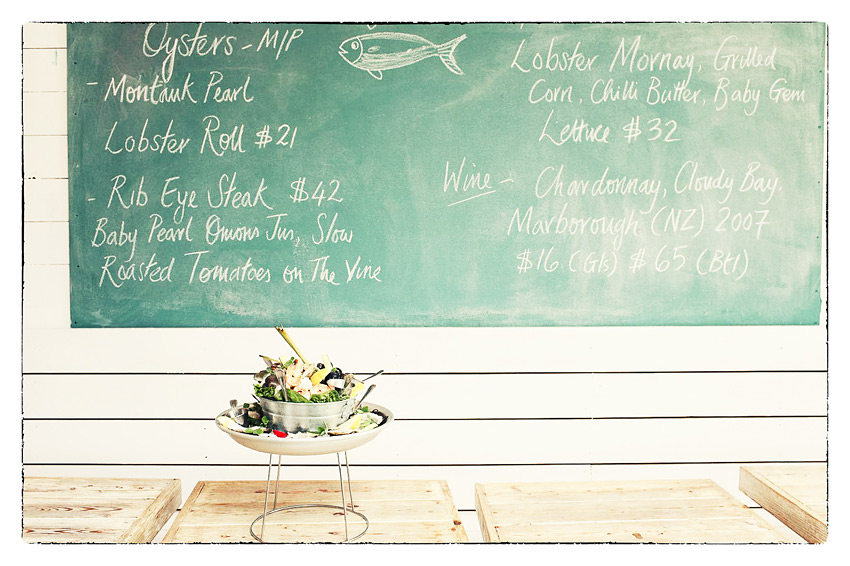 Oysters - M/P
- Montauk Pearl
Lobster Roll $21
- Rib Eye Steak $42
Baby Pearl Onions Jus, Slow
Roasted Tomatoes on The Vine
Lobster Mornay, Grilled
Corn, Chilli Butter, Baby Gem
Lettuce $32
Wine - Chardonnay, Cloudy Bay.
Marborough (NZ) 2007
$16 (Gls) $65 (Btl)